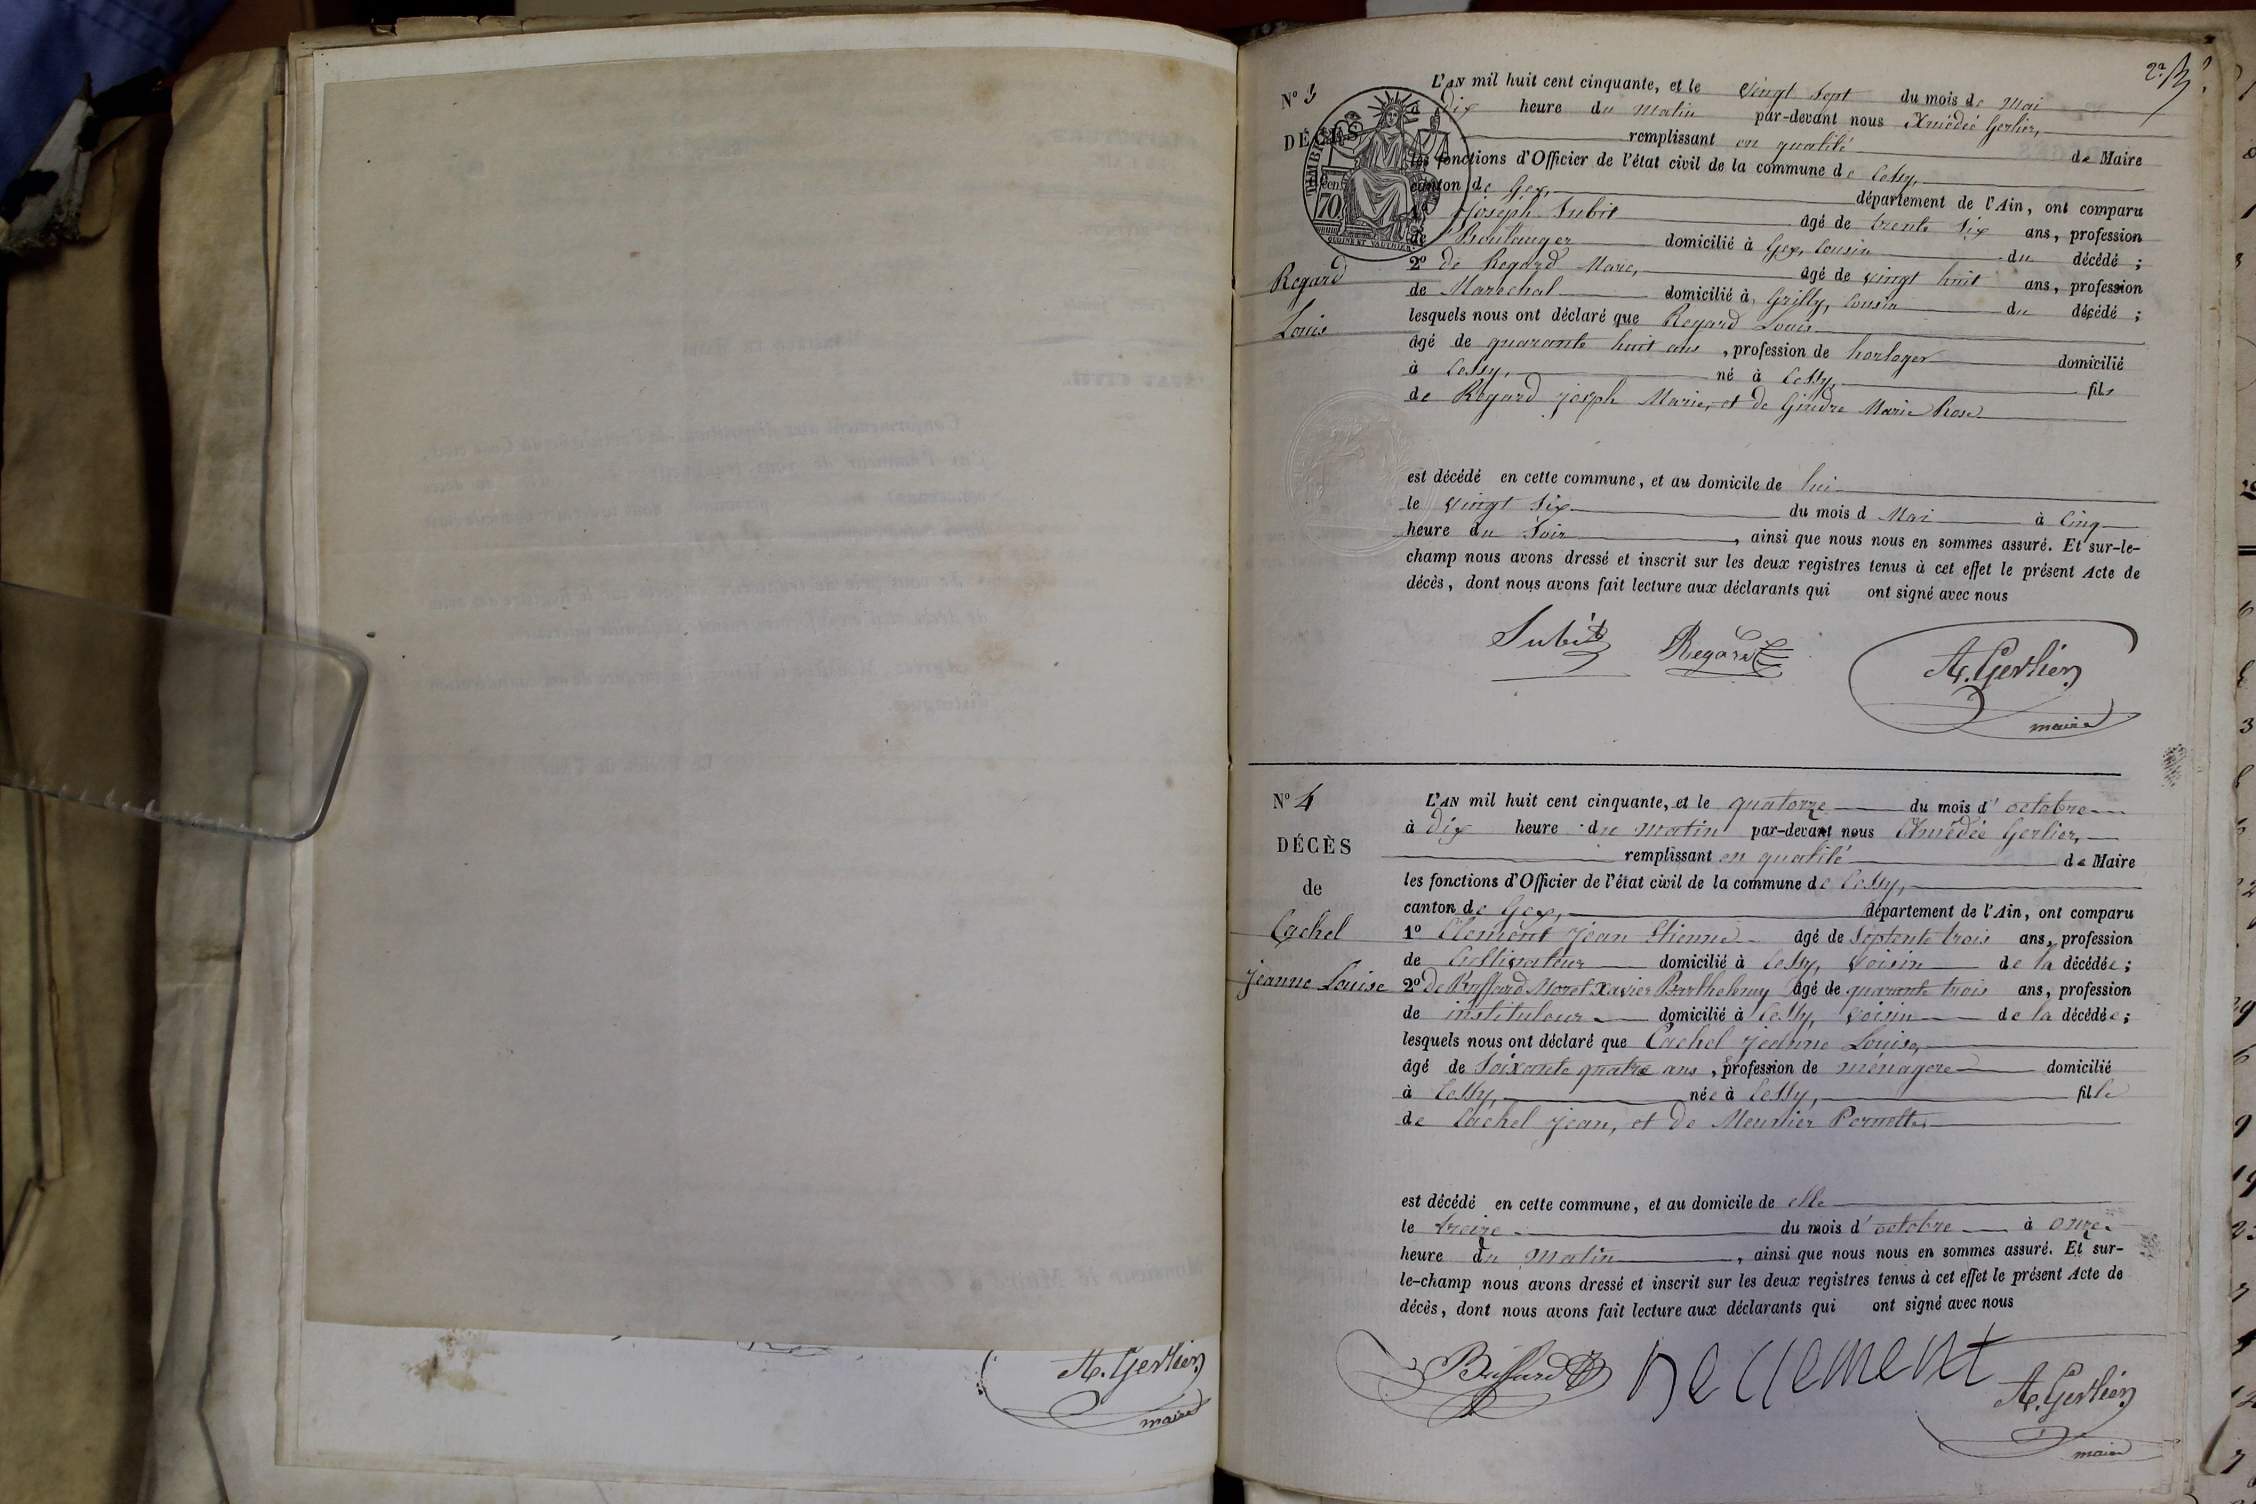 A. Gerlier
maire
2e
N° 3
DÉCÈS
TIMBRE
70
Regard
Louis
L'AN mil huit cent cinquante, et le vingt sept du mois de Mai
à dix heure du matin par-devant nous Amédée Gerlier,
remplissant en qualité de Maire
les fonctions d'Officier de l'état civil de la commune de Cessy,
canton de Gex, département de l'Ain, ont comparu
1° Joseph Subit âgé de trente six ans, profession
de Boulanger domicilié à Gex, cousin du décédé ;
2° de Regard Marc, âgé de vingt huit ans, profession
de Marechal domicilié à Grilly, cousin du décédé ;
lesquels nous ont déclaré que Regard Louis
âgé de quarante huit ans, profession de horloger domicilié
à Cessy, né à Cessy, fils
de Regard Joseph Marie, et de Gindre Marie Rose
est décédé en cette commune, et au domicile de lui
le vingt six du mois d Mai à Cinq
heure du Soir, ainsi que nous nous en sommes assuré. Et sur-le-
champ nous avons dressé et inscrit sur les deux registres tenus à cet effet le présent Acte de
décès, dont nous avons fait lecture aux déclarants qui ont signé avec nous
Subit Regard A. Gerlier
maire
N° 4
DÉCÈS
de
Cachel
Jeanne Louise
L'AN mil huit cent cinquante, et le quatorze du mois d'octobre
à dix heure du matin par-devant nous Amédée Gerlier,
remplissant en qualité de Maire
les fonctions d'Officier de l'état civil de la commune de Cessy,
canton de Gex, département de l'Ain, ont comparu
1° Clement Jean Etienne âgé de Septente trois ans, profession
de Cultivateur domicilié à Cessy, voisin de la décédée ;
2° de Buffard Moret Xavier Barthelemy âgé de quarante trois ans, profession
de instituteur domicilié à Cessy, voisin de la décédée ;
lesquels nous ont déclaré que Cachel Jeanne Louise,
âgé de Soixante quatre ans, profession de ménagere domicilié
à Cessy, née à Cessy, fille
de Cachel Jean, et de Meunier Pernette
est décédé en cette commune, et au domicile de elle
le treize du mois d'octobre à onze
heure du Matin, ainsi que nous nous en sommes assuré. Et sur-
le-champ nous avons dressé et inscrit sur les deux registres tenus à cet effet le présent Acte de
décès, dont nous avons fait lecture aux déclarants qui ont signé avec nous
Buffard Clement A. Gerlier
maire